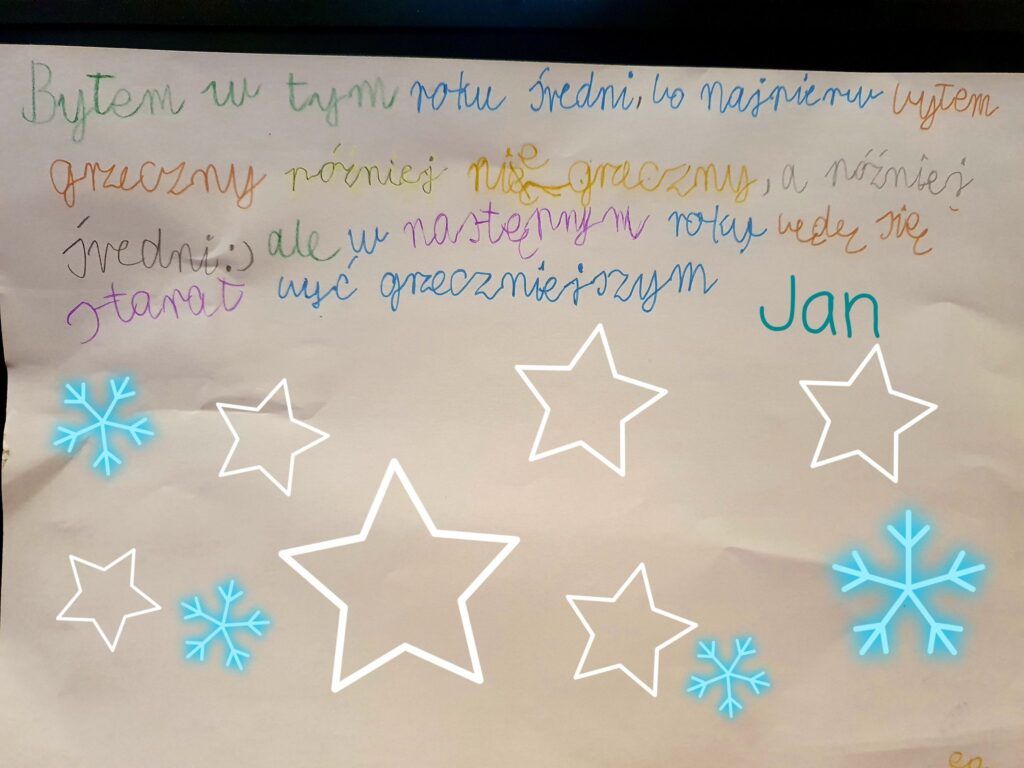 Byłem w tym roku średni, bo najpierw byłem
grzeczny później nie grzeczny, a później
średni:) ale w następnym roku będę się
starał być grzeczniejszym
Jan